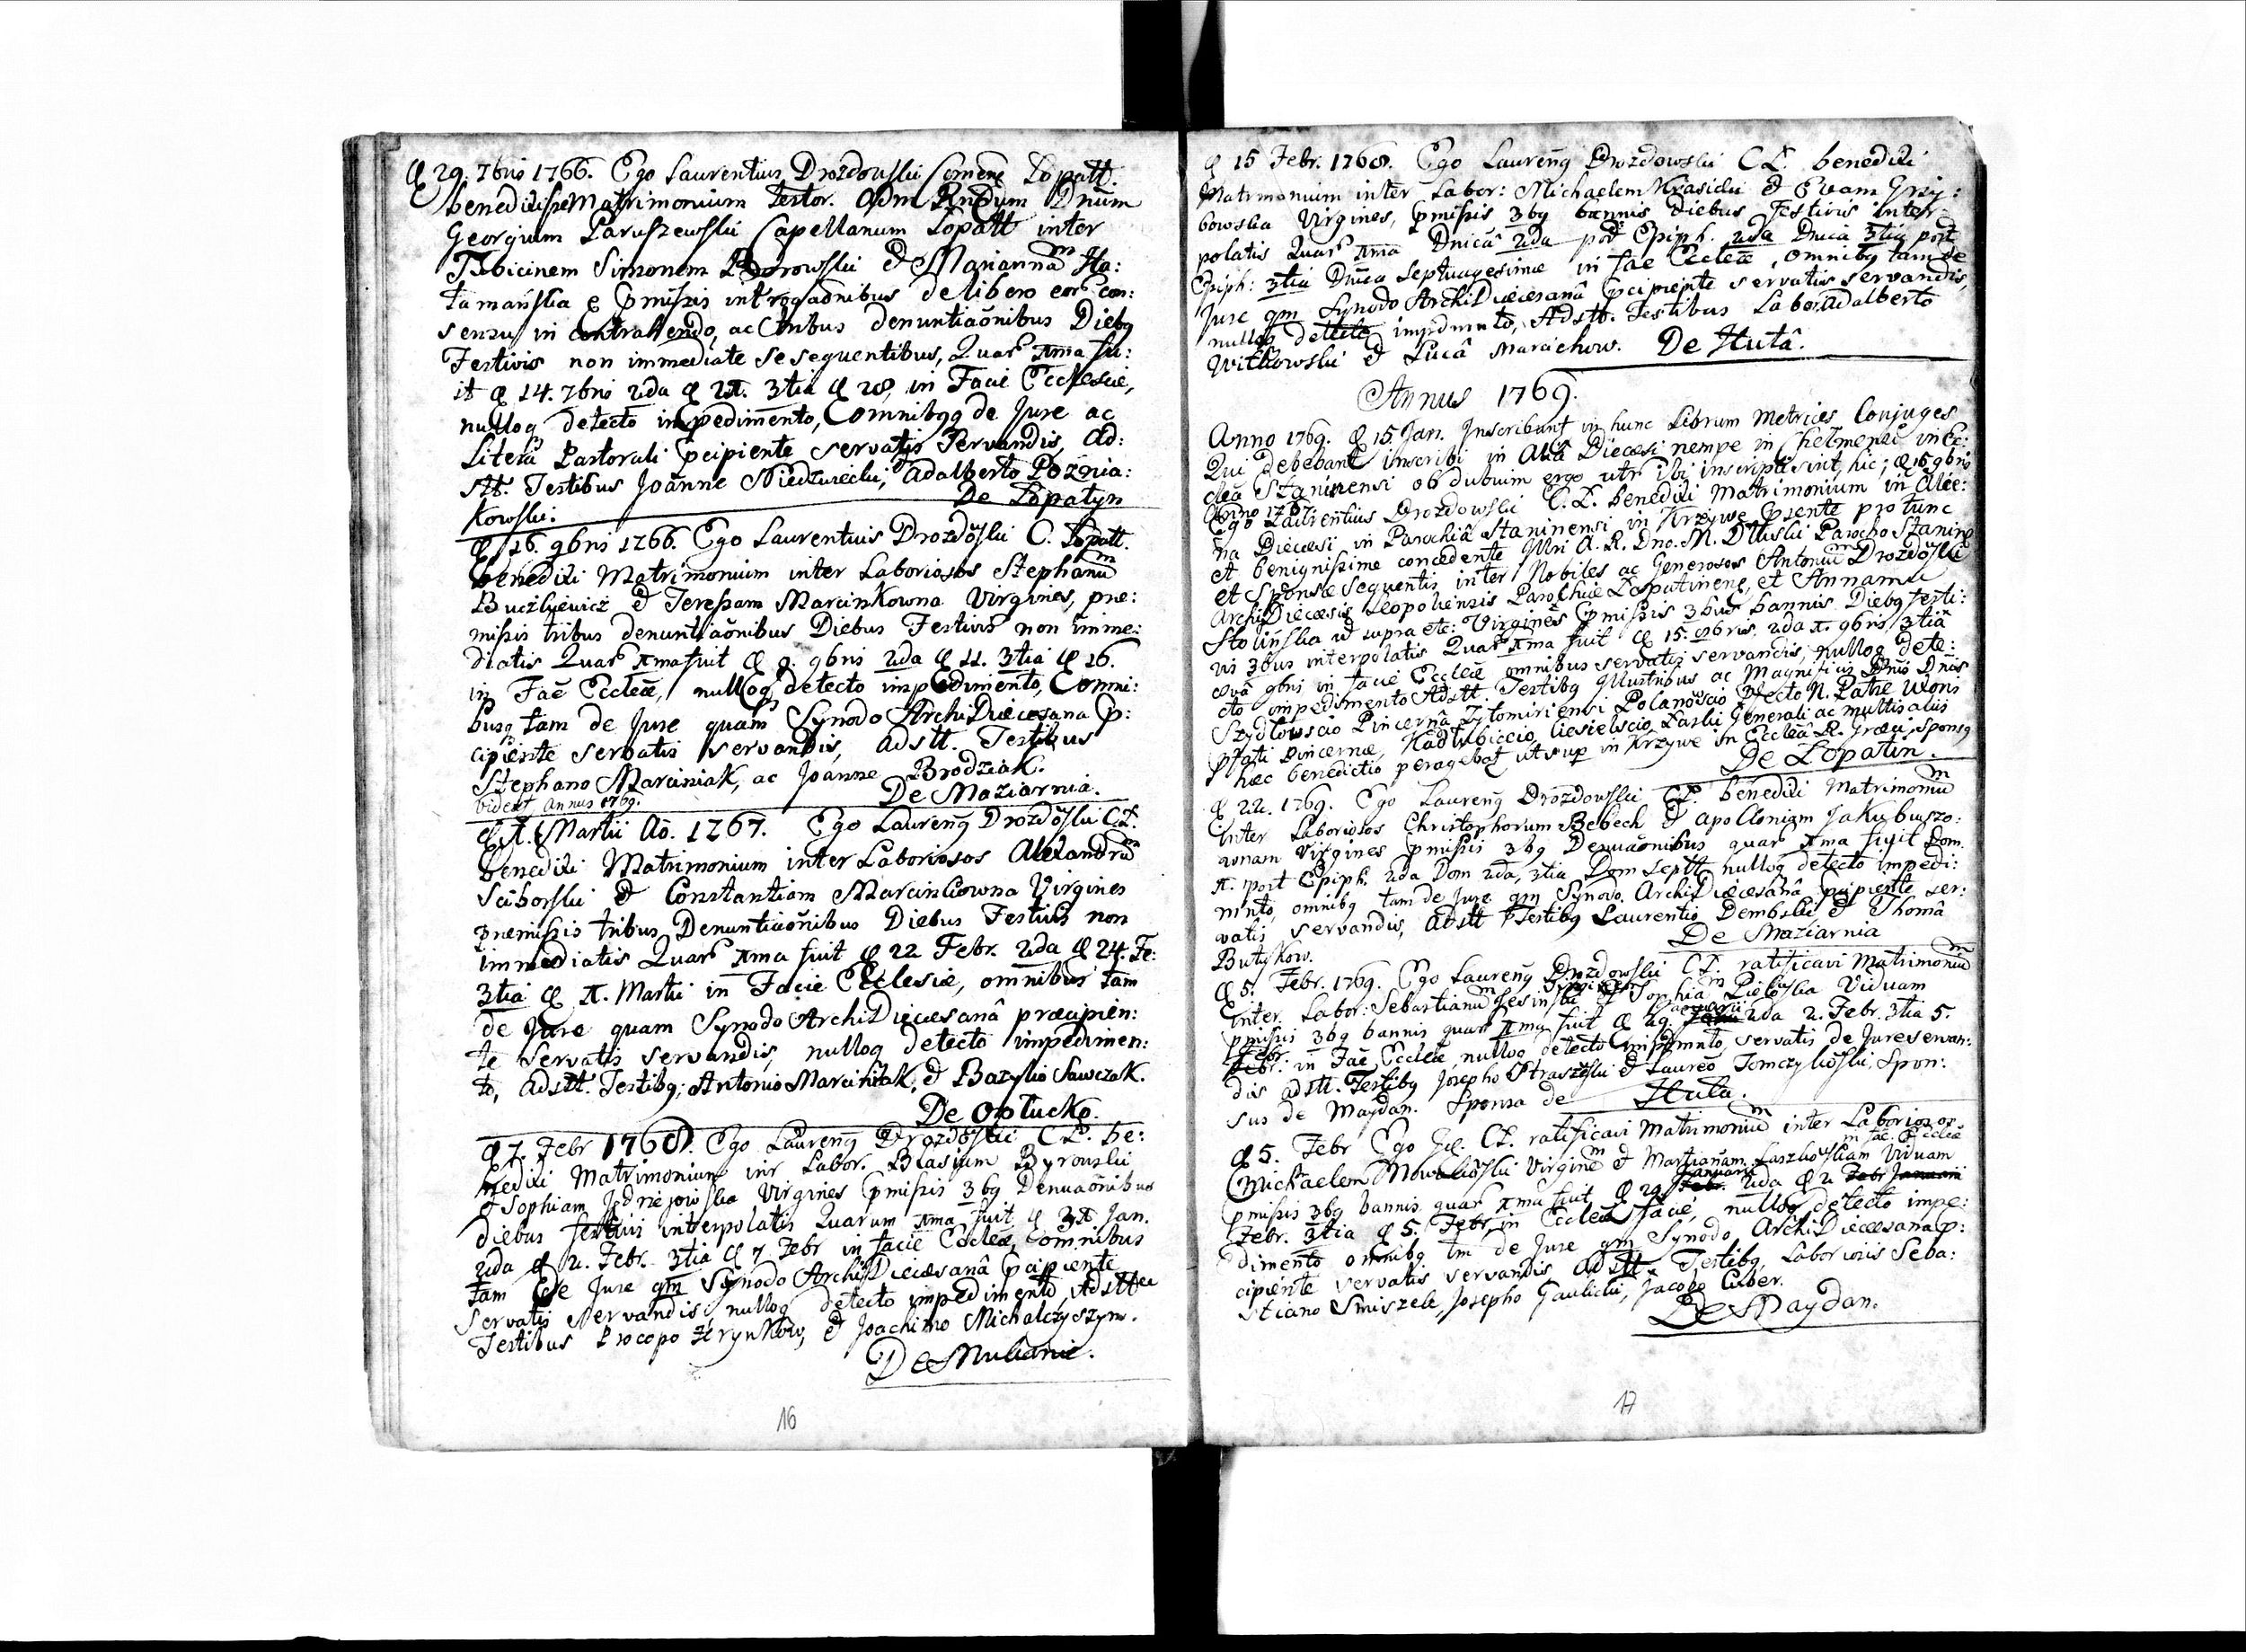 D 29. 7bris 1766. Ego Laurentius Drozdowski Comend Lopatt
benedixisse Matrimonium testor. Adm Rndum Dnum
Georgium Paruszewski Capellanum Lopatt inter
Tubicinem Simonem Borowski et Mariannam Sta:
tamańska e pmissis introgaonibus de libero eor con:
sensu in contrahendo, ac tribus denuntiaonibus Diebq
Festivis non immediate se sequentibus, Quar 1ma fu:
it D 14. 7bris 2da D 21. 3tia D 28, in Facie Ecclesiæ,
nulloq detecto impedimento, omnibqq de Jure ac
Litera Pastorali pcipiente servatis servandis, ad:
stt. Testibus Joanne Niedzwiecki, Adalberto Poznia:
kowski.
De Lopatyn
D 16. 9bris 1766. Ego Laurentius Drozdoski C. Lopatt.
benedixi Matrimonium inter Laboriosos Stephanum
Buczkiewicz et Teressam Marcinkowna Virgines, præ:
missis tribus denuntiaonibus Diebus Festivis non imme:
diatis Quar 1ma fuit D 9. 9bris 2da D 11. 3tia D 16.
in Fae Eccleæ, nulloq detecto impedimento, omni:
busq tam de Jure quam Synodo ArchiDiæcesana p:
cipiente servatis servandis, adstt. Testibus
Stephano Marciniak, ac Joanne Brodziak.
De Maziarnia.
videat Annus 1769.
D 1. Martii Ao. 1767. Ego Laurenq Drozdoski CL.
benedixi Matrimonium inter Laboriosos Alexandrum
Sciborski et Constantiam Marcinkowna Virgines
præmissis tribus Denuntiaonibus Diebus Festivis non
immediatis Quar 1ma fuit D 22 Febr. 2da D 24. Fe:
3tia D 1. Martii in Facie Ecclesiæ, omnibus tam
de Jure quam Synodo ArchiDiæcesanâ præcipien:
te servatis servandis, nulloq detecto impedimen:
to, adstt. Testibq; Antonio Marciniak, et Bazylio Sawczak.
De Opłucko.
D 7. Febr 1768. Ego Laurenq Drozdoski CL. be:
nedixi Matrimonium intr Labor. Blasium Byrowski
et Sophiam Jędrzejowska Virgines pmissis 3bq Denuaonibus
diebus festivis interpolatis Quarum 1ma fuit D 31 Jan.
2da D 2. Febr. 3tia D 7 Febr in facie Eccleæ, omnibus
tam de Jure qm Synodo ArchiDiæcesanâ pcipiente
servatis servandis, nulloq detecto impedimento, Adstt
Testibus Procopo Hrynkow, et Joachimo Michalczyszyn.
De Mulanie.
16
D 15 Febr. 1768. Ego Laurenq Drozdowski CL. benedixi
Matrimonium inter Labor: Michaelem Krasicki et Evam Grzy:
bowska Virgines, pmissis 3bq bannis diebus Festivis inter:
polatis Quar 1ma Dnicâ 2da post Epiph. 2da Dnica 3tia post
Epiph: 3tia Dnica Septuagesimæ in fae Eccleæ, omnibq tam de
Jure qm Synodo ArchiDiæcesanâ pcipiente servatis servandis,
nulloq dettcto impdmnto, Adstt. Testibus Labor Adalberto
Witkowski et Lucâ Marcichow. De Hutâ.
Annus 1769.
Anno 1769. D 15. Jan. Inscribunt in hunc Librum Metrices Conjuges
Qui debebant inscribi in Aliâ Diæcesi nempe in Chelmensi in Ec:
cleâ Staninensi ob dubium ergo utr ibi inscripti sint, hic; D 15 9bris
Anno 176
Ego Laurentius Drozdowski C.L. benedixi Matrimonium in Alie:
na Diæcesi in Parochiâ Staninensi in Krzywe psente protunc
et benignissime concedente Illri A. R. Dno. M. Dłuski Parocho Stanine
et Sponsæ Sequentis inter Nobiles ac Generosos Antonium Drozdoski
ArchiDiæcesis Leopoliensis Parochiæ Lopatinens, et Annam
Stolińska ut supra etc: Virgines pmissis 3bus bannis Diebq festi:
vis 3bus interpolatis Quar 1ma fuit D 15. 8bris, 2da 1. 9bris, 3tia
9bris in facie Eccleæ omnibus servatis servandis, nulloq dete:
cto impedimento Adstt Testibq Illustribus ac Magnificis Dnis Dnis
Szydłowscio Pincerna Zytomiriensi Polanowscio Pfecto N. Patre Uxoris
pfati Pincernæ, Kadłubiccio, Ciesielscio Laski Generali ac multis aliis
hæc benedictio peragebat ut sup in Krzywe in Eccleâ R. Græci, Sponsq
De Lopatin.
D 22. 1769. Ego Laurenq Drozdowski CL. benedixi Matrimonium
inter Laboriosos Christophorum Bebech et Apolloniam Jakubuszo:
wnam Virgines pmissis 3bq Denuaonibus quar 1ma fuit Dom.
1. post Epiph. 2da Dom 2da, 3tia Dom Septt nulloq detecto impedi:
mnto, omnibq tam de Jure qm Synodo ArchiDiæcesanâ pcipiente ser:
vatis servandis, adstt Testibq Laurentio Dembski et Thomâ
Butykow.
De Maziarnia
D 5. Febr. 1769. Ego Laurenq Drozdowski CL. ratificavi Matrimonium
inter Labor: Sebastianum Jesinski Virginem et Sophiam Pielowska Viduam
pmissis 3bq bannis quar 1ma fuit D 29. Januarii 2da 2. Febr. 3tia 5.
Febr. in Fae Eccleæ nulloq detecto impdmnto, servatis de Jure servan:
dis adstt. Testibq Josepho Straszoski et Laureo Tomczykoski, Spon:
sus de Maydan. Sponsa de Huta.
D 5. Febr Ego CL. ratificavi Matrimonium inter Laborios os
in fac. Eccleæ
Michaelem Nowakoski Virginem et Mariannam Laszkowskam Viduam
pmissis 3bq bannis quar 1ma fuit D 29. Januarii 2da D 2.
Febr. 3tia D 5. Febr. in Eccleæ facie, nulloq detecto impe:
dimento omnibq tm de Jure qm Synodo ArchiDiæcesana p:
cipiente servatis servandis adstt. Testibq, Laboriosis Seba:
stiano Smiszek, Josepho Gaulicki, Jacobo Ciber.
De Maydan.
17